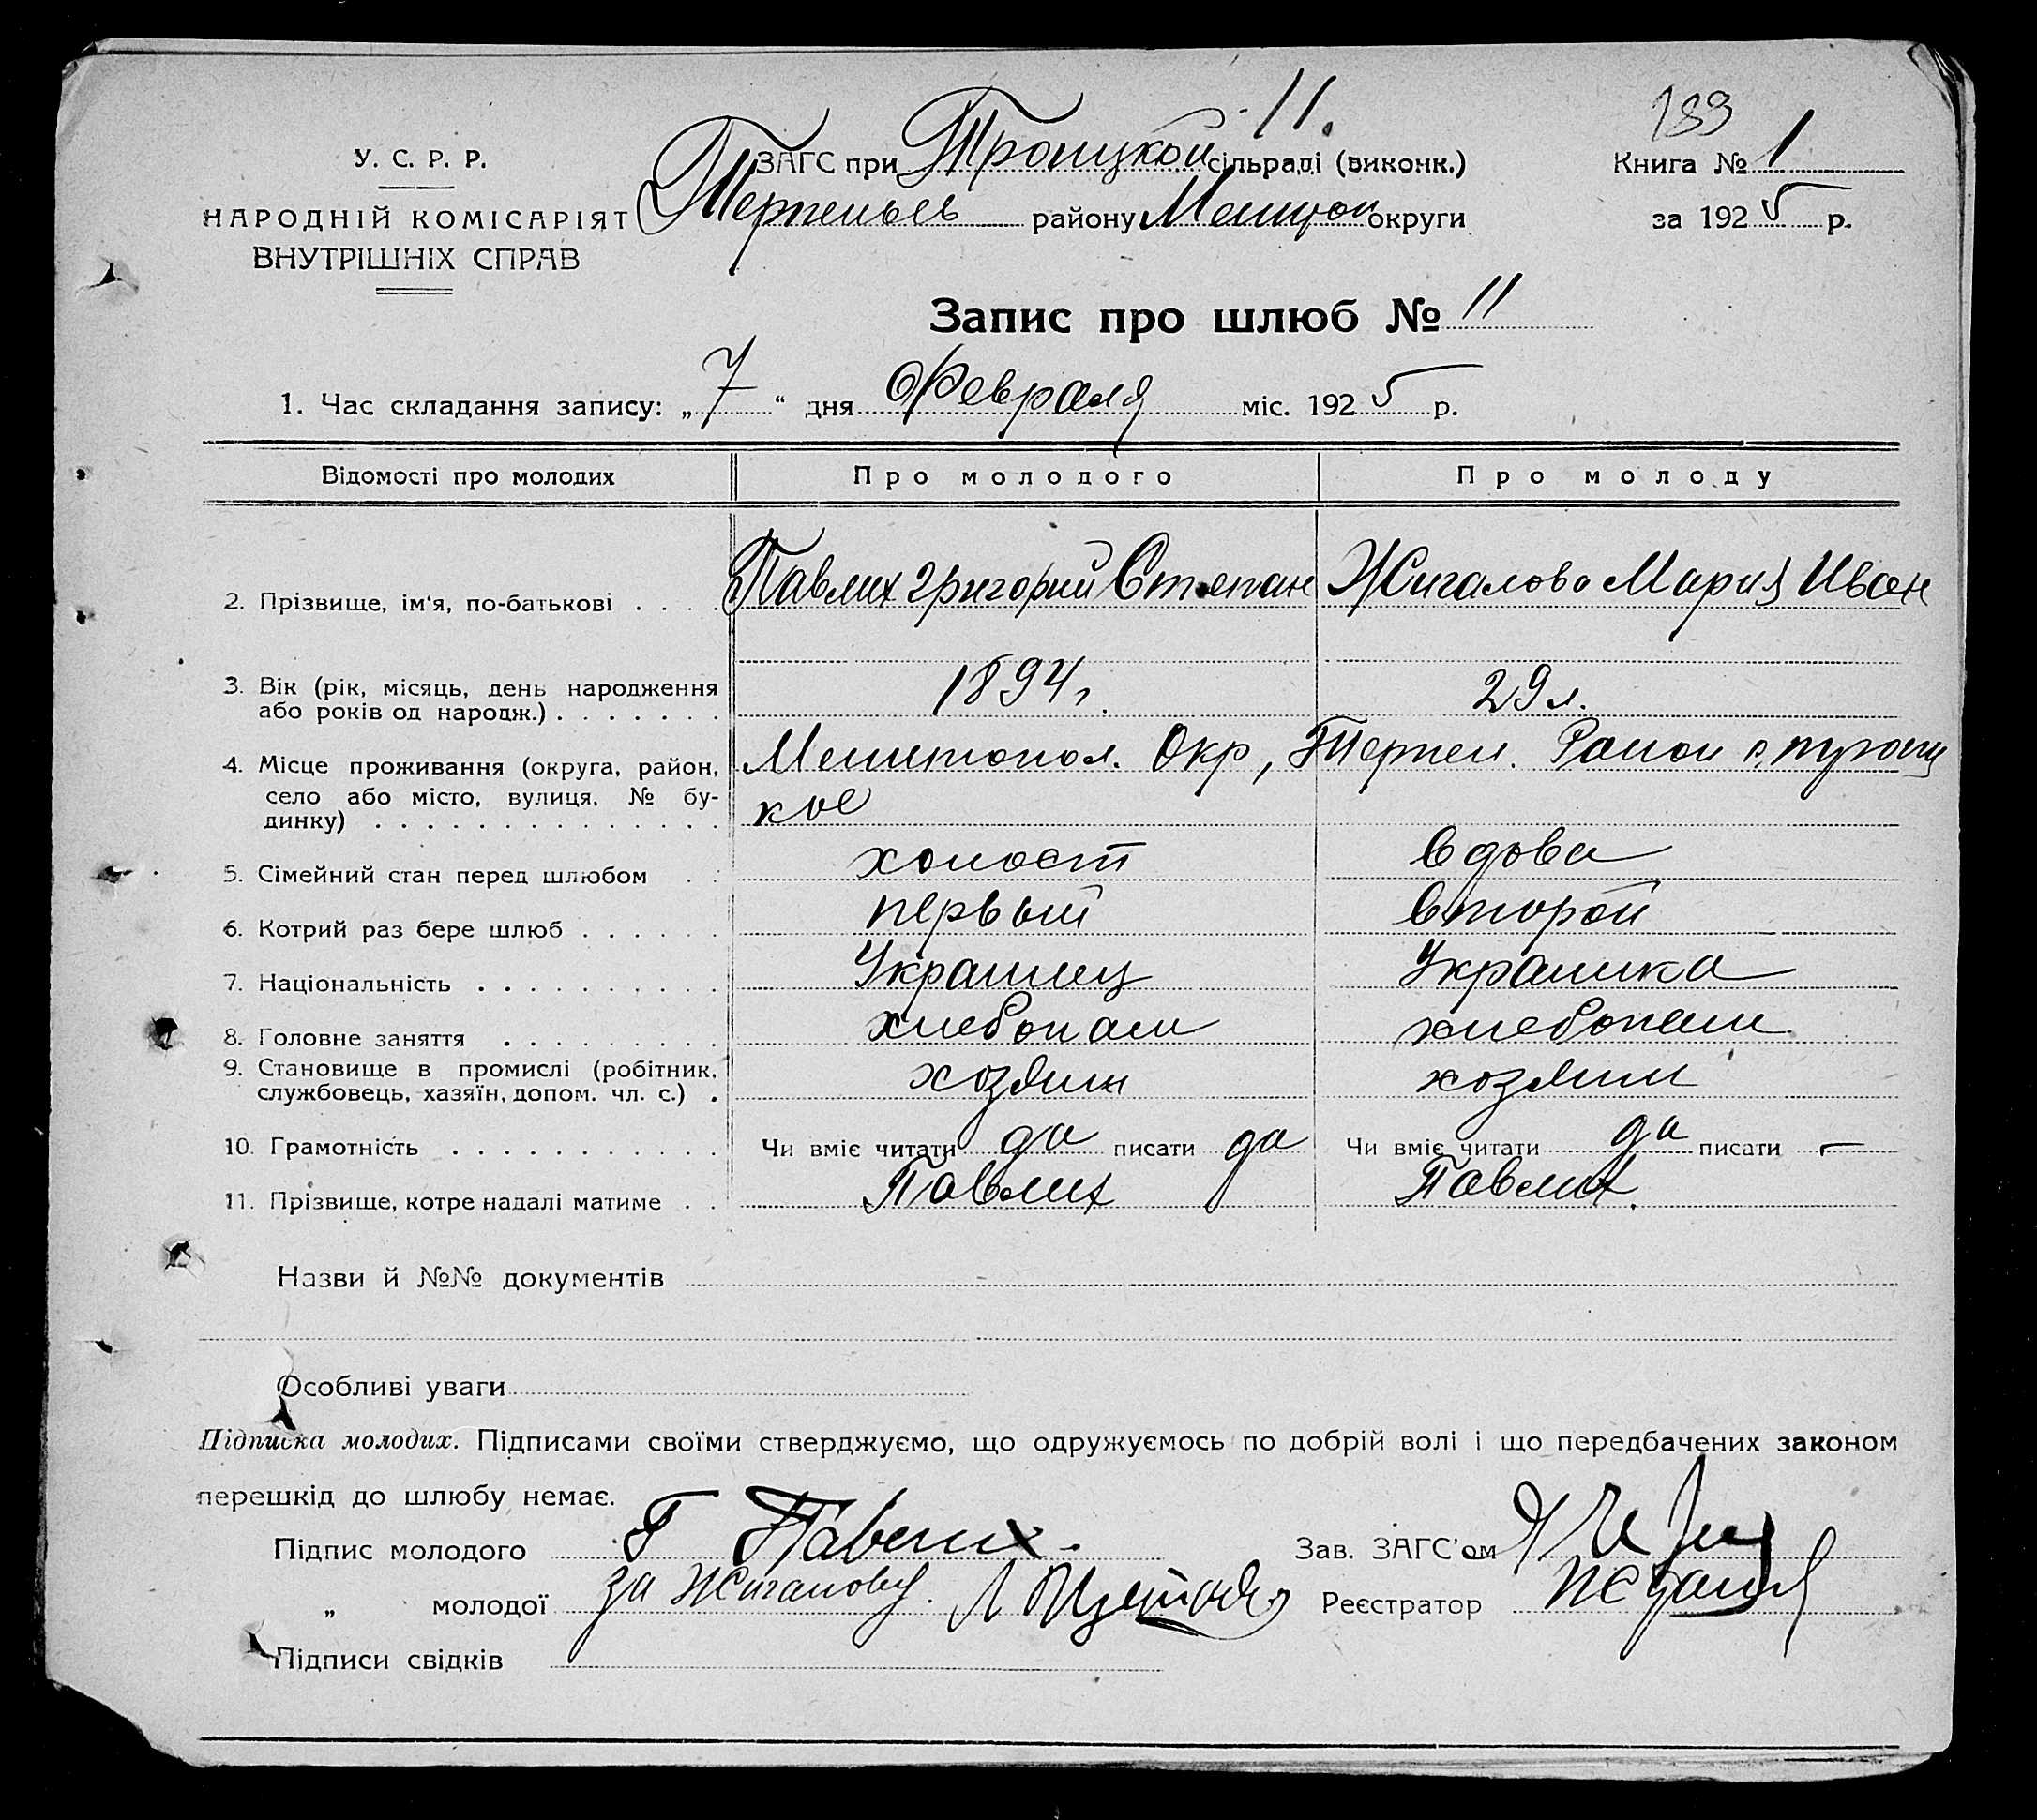 11.
183
У. С. Р. Р.
ЗАГС при Троицкой сільраді (виконк.)
Книга № 1
НАРОДНІЙ КОМІСАРІЯТ
Терпеньев району Мелитоп округи
за 1925 р.
ВНУТРІШНІХ СПРАВ
Запис про шлюб № 11
1. Час складання запису: „7“ дня Февраля міс. 1925 р.
Відомості про молодих
Про молодого
Про молоду
2. Прізвище, ім'я, по-батькові . . . .
Павлих Григорий Степан
Жигалова Мария Иван
3. Вік (рік, місяць, день народження
або років од народж.) . . . . . . .
1894 г.
29 л.
4. Місце проживання (округа, район,
село або місто, вулиця, № бу-
динку) . . . . . . . . . . . . . .
Мелитопол. Окр, Терпен. Район с. троиц
кое
5. Сімейний стан перед шлюбом . .
холост
вдова
6. Котрий раз бере шлюб . . . . . .
первый
второй
7. Національність . . . . . . . . . .
Украинец
Украинка
8. Головне заняття . . . . . . . . .
хлебопаш
хлебопаш
9. Становище в промислі (робітник,
службовець, хазяїн, допом. чл. с.) .
хозяин
хозяин
10. Грамотність . . . . . . . . . . .
Чи вміє читати да писати да
Чи вміє читати да писати —
11. Прізвище, котре надалі матиме . .
Павлих
Павлих.
Назви й №№ документів
Особливі уваги
Підписка молодих. Підписами своїми стверджуємо, що одружуємось по добрій волі і що передбачених законом
перешкід до шлюбу немає.
Підпис молодого Г Павлих.
Зав. ЗАГС'ом
„ молодої за Жигалову.
Реєстратор
Підписи свідків